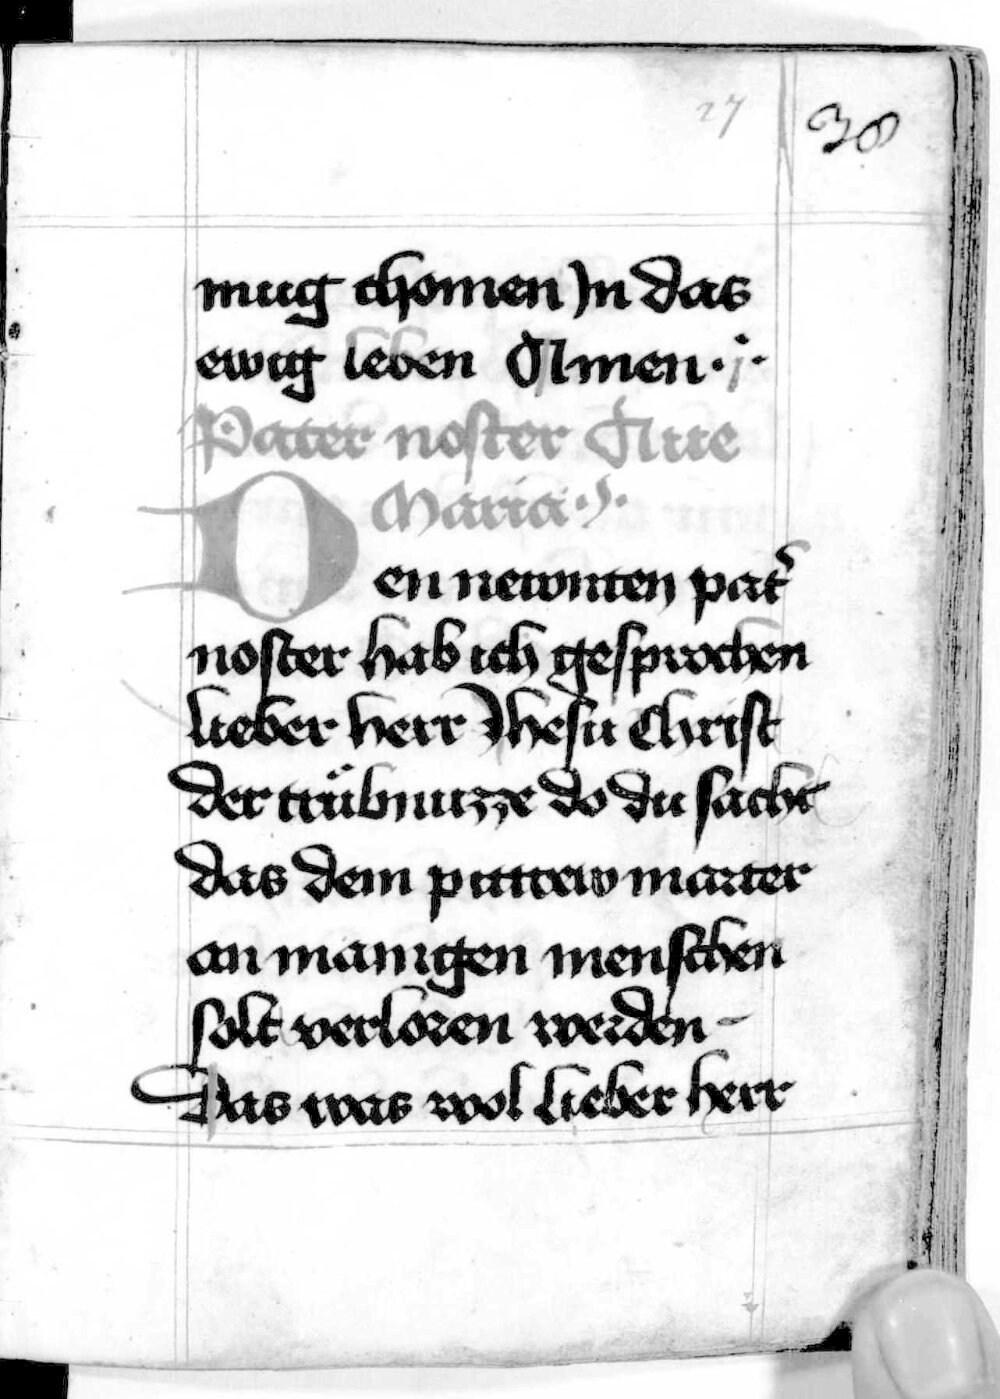 27 38
mug chomen Jn das
ewig leben Amen ·j·
Pater noster Aue
Maria ·J·
Den newnten pat͛
noster hab ich gesprochen
lieber herr Jhesu Christ
der trübnuzze do du sacht
das dem pittrew marter
an manigen menschen
solt verloren werden -
Das was wol lieber herr